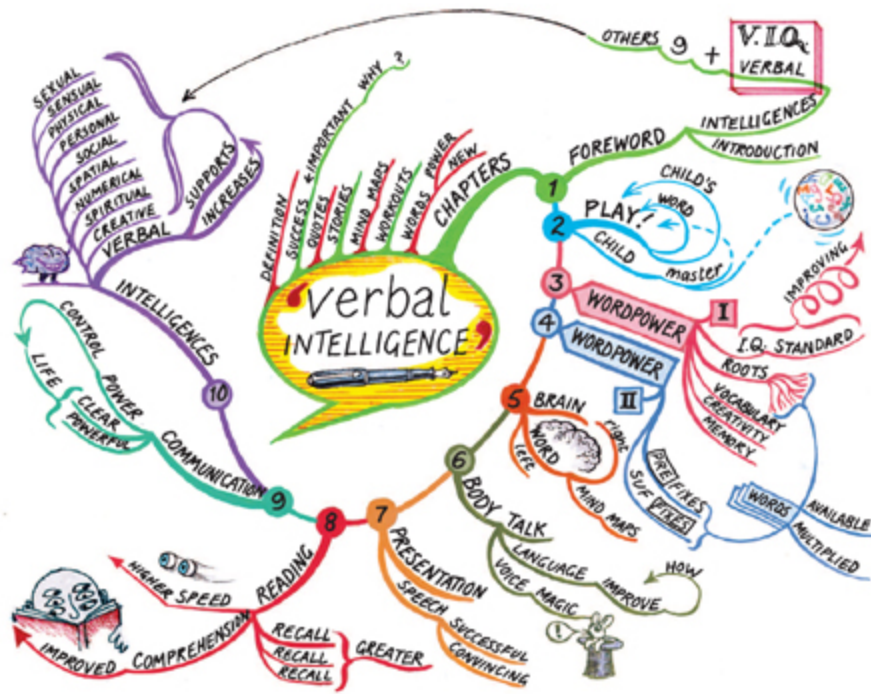 ‘verbal
INTELLIGENCE’
CHAPTERS
DEFINITION
SUCCESS
IMPORTANT
WHY?
QUOTES
STORIES
MIND MAPS
WORKOUTS
WORDS
POWER
NEW
1
FOREWORD
INTELLIGENCES
INTRODUCTION
V.I.Q.
VERBAL
+
OTHERS 9
2
PLAY!
CHILD'S
WORD
CHILD
master
3
WORDPOWER
I
I.Q. STANDARD
IMPROVING
ROOTS
VOCABULARY
CREATIVITY
MEMORY
4
WORDPOWER
II
PREFIXES
SUF FIXES
WORDS
AVAILABLE
MULTIPLIED
5
BRAIN
WORD
left
right
MIND MAPS
6
BODY TALK
LANGUAGE
IMPROVE
HOW
VOICE
MAGIC
!
7
PRESENTATION
SPEECH
SUCCESSFUL
CONVINCING
8
READING
HIGHER SPEED
COMPREHENSION
IMPROVED
RECALL
RECALL
RECALL
GREATER
9
COMMUNICATION
POWER
CONTROL
CLEAR
POWERFUL
LIFE
10
INTELLIGENCES
SEXUAL
SENSUAL
PHYSICAL
PERSONAL
SOCIAL
SPATIAL
NUMERICAL
SPIRITUAL
CREATIVE
VERBAL
SUPPORTS
INCREASES